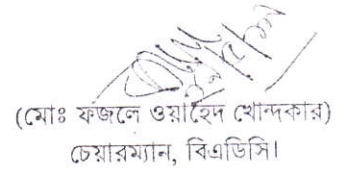 (মোঃ ফজলে ওয়াহেদ খোন্দকার)
চেয়ারম্যান, বিএডিসি।